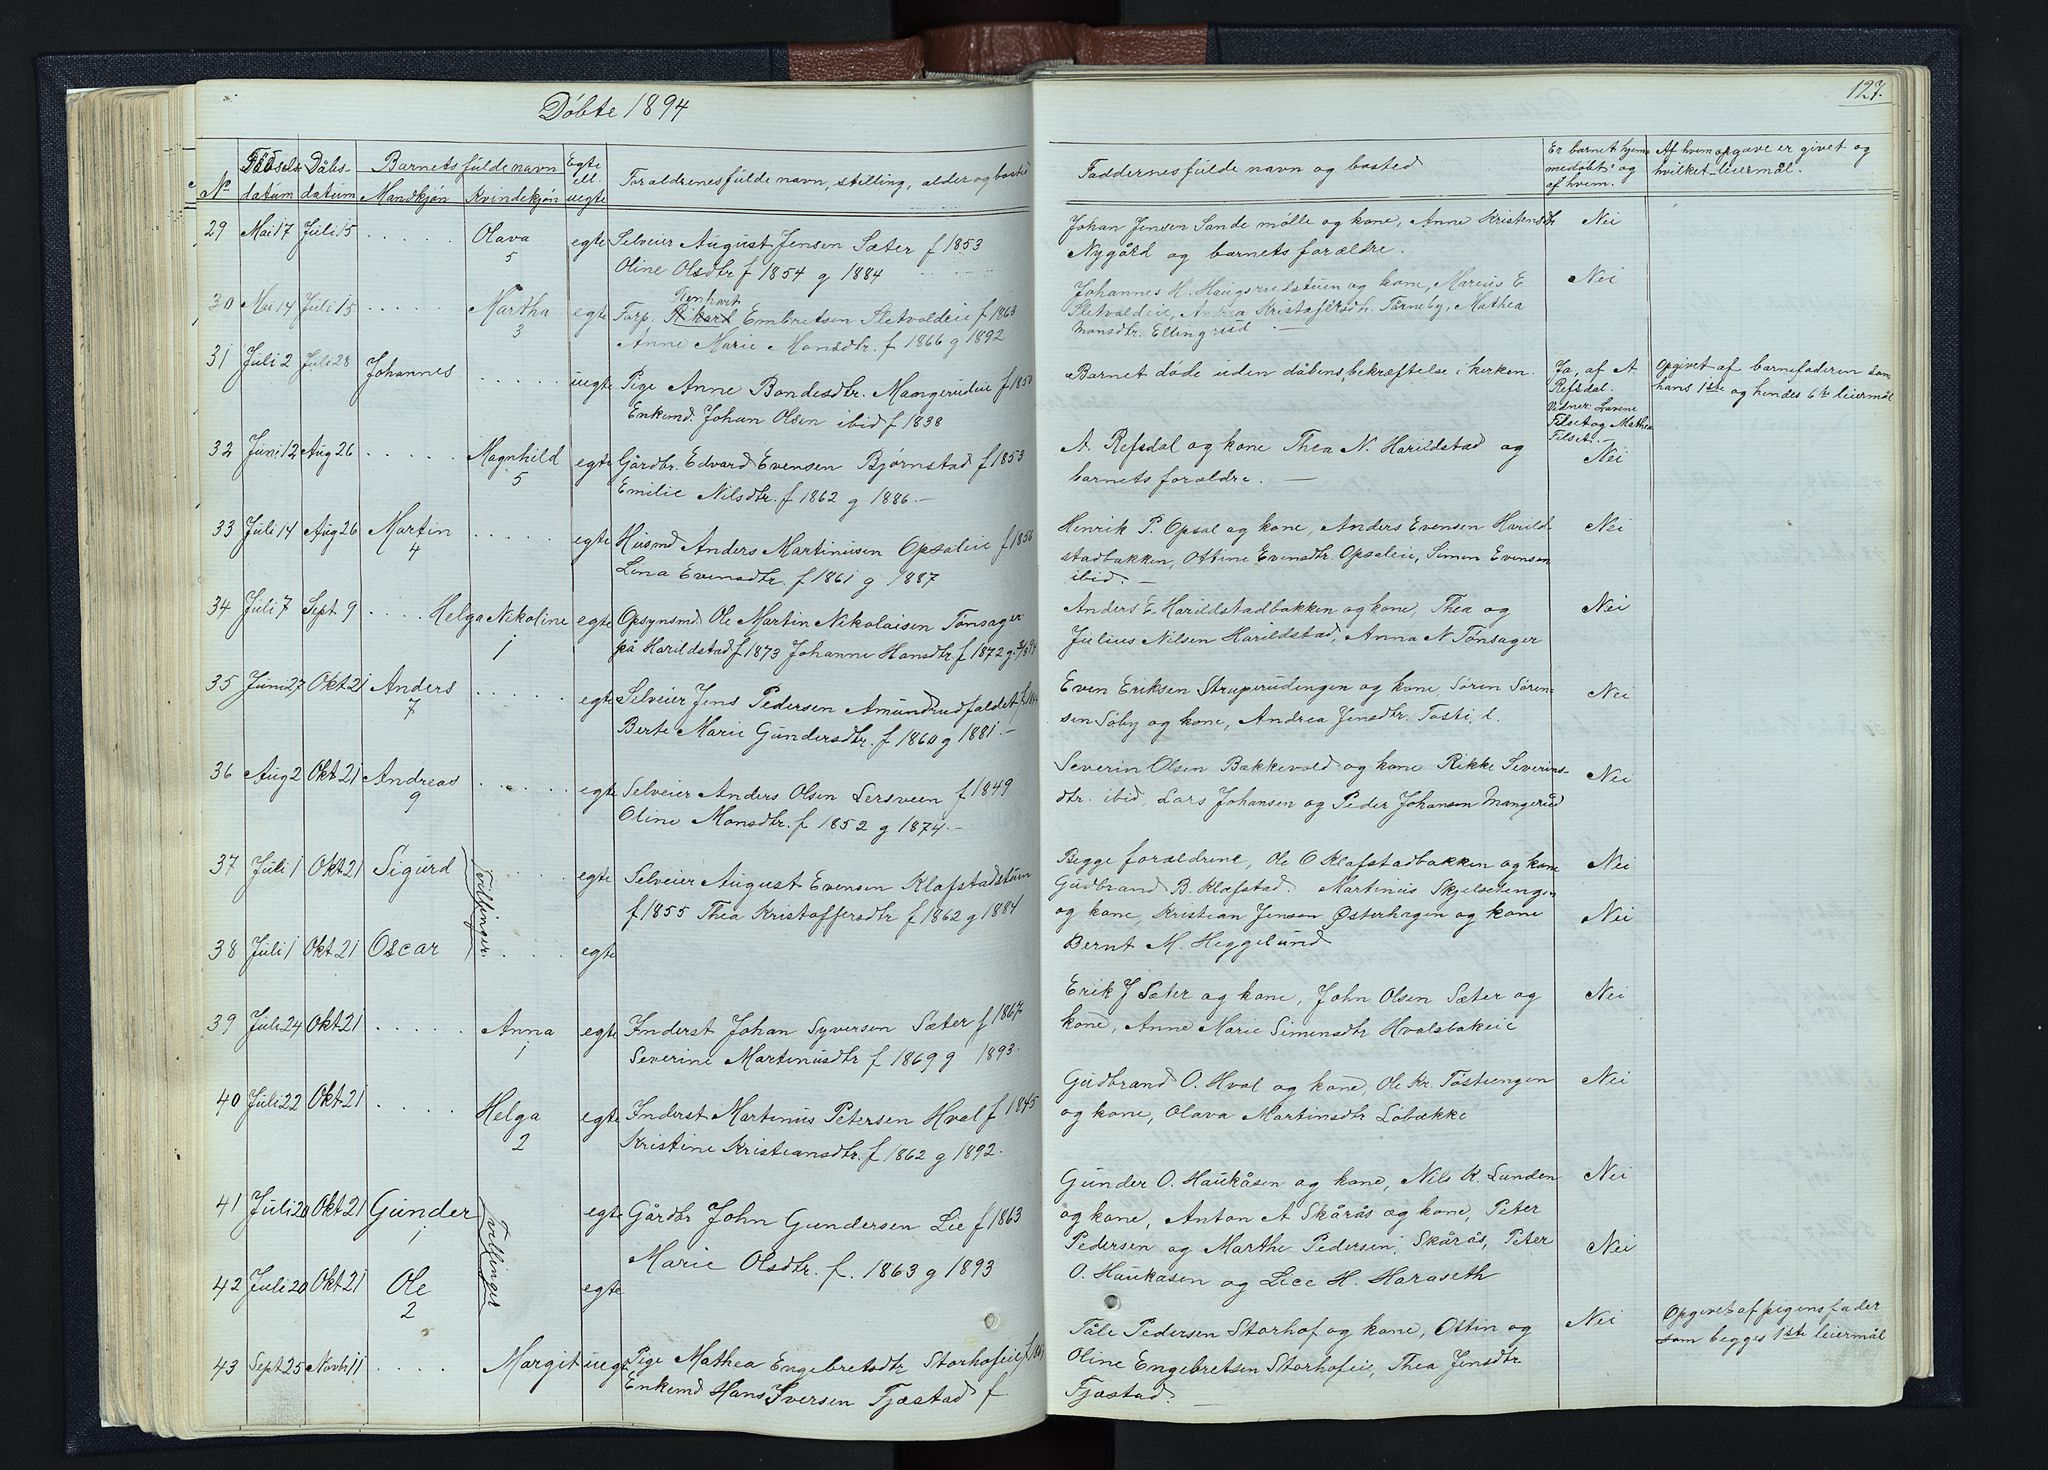 Døbte 1894
127.
No
Fødsels-
datum
Dåbs-
datum
Barnets fulde navn
Mandkjøn
Kvindekjøn
Egte
ell.
uegte
Forældrenes fulde navn, stilling, alder og bosted
Faddernes fulde navn og bosted
Er barnet hjem-
medøbt? og
af hvem.
Af hvem opgave er givet og
hvilket leiermål.
29 Mai 17 Juli 15 Olava egte Selveier August Jensen Sæter f 1853
5
Oline Olsdtr f 1854 g 1884
Johan Jensen Sande mølle og kone, Anne Kristensdtr Nei
Nygård og barnets forældre.
30 Mai 14 Juli 15 Martha egte Torp. Renhart Embretsen Sletvoldeie f 1863
3
Anne Marie Monsdtr. f 1866 g 1892
Johannes H. Haugsrudstuen og kone, Marius E Nei
Sletvoldeie, Kristofersdtr. Tørneby, Mathea
Monsdtr. Ellingrud. —
31 Juli 2 Juli 28 Johannes uegte Pige Anne Bondesdtr. Mangerudeie f 1850
Enkemd. Johan Olsen ibid f 1838
Barnet døde uden dåbens bekræftelse i kirken.
Ja, af A
Refsdal.
Vidner: Lavene
Filset og Mathea
Filset. —
Opgivet af barnefaderen som
hans 1ste og hendes 6te leiermål
32 Juni 12 Aug 26 Magnhild egte Gårdbr. Edvard Evensen Bjørnstad f 1853
5
Emilie Nilsdtr. f 1862 g 1886. —
A. Refsdal og kone Thea N. Harildstad og Nei
barnets forældre. —
33 Juli 14 Aug 26 Martin egte Husmd Anders Martinusen Opsaleie f 1856
4
Lina Evensdtr. f 1861 g 1887
Henrik P. Opsal og kone, Anders Evensen Harild- Nei
stadbakken, Ottine Evensdtr. Opsaleie, Simen Evensen
ibid. —
34 Juli 7 Sept 9 Helga Nikoline egte Opsynsmd Ole Martin Nikolaisen Tønsager
1
på Harildstad f 1873 Johanne Hansdtr f 1872 g.
Anders E. Harildstadbakken og kone, Thea og Nei
Julius Nilsen Harildstad, Anna N Tønsager
35 Juni 27 Okt 21 Anders egte Selveier Jens Pedersen Amundrudfaldet
7
Berte Marie Gundersdtr. f 1860 g 1881. —
Even Eriksen Struperudengen og kone, Søren Søren- Nei
sen Søby og kone, Andrea Jensdtr. Tosti, l.
36 Aug 2 Okt 21 Andreas egte Selveier Anders Olsen Lersveen f 1849
9
Oline Monsdtr. f 1852 g 1874. —
Severin Olsen Bækkevold og kone Rikke Severins- Nei
dtr. ibid, Lars Johansen og Peder Johansen Mangerud
37 Juli 1 Okt 21 Sigurd egte Selveier August Evensen Klafstadstuen
Tvillinger.
f 1855 Thea Kristoffersdtr f 1862 g 1884
38 Juli 1 Okt 21 Oscar egte
Begge forældrene, Ole O Klafstadbakken og kone Nei
Gudbrand B. Klæfstad. Martinus Skjelsedengen
og kone, Kristian Jenson Østerhagen og kone Nei
Bernt M. Heggelund
39 Juli 24 Okt 21 Anna egte Inderst Johan Syversen Sæter f 1867
1
Severine Martinusdtr f 1869 g 1893.
Erik J Sæter og kone, John Olsen Sæter og Nei
kone, Anne Marie Simensdtr Hvalsbakeie
40 Juli 22 Okt 21 Helga egte Inderst Martinus Petersen Hval f 1845
2
Kristine Kristiansdtr. f 1862 g 1892.
Gudbrand O. Hval og kone, Ole Kr. Tostiengen Nei
og kone, Olava Martinsdtr Løbække
41 Juli 20 Okt 21 Gunder egte Gårdbr John Gundersen Lie f 1863
1
Tvillinger
Marie Olsdtr. f. 1863 g 1893
42 Juli 20 Okt 21 Ole egte
2
Gunder O. Haukåsen og kone, Nils K. Lunden Nei
og kone, Anton A Skårås og kone, Peter
Pedersen og Marthe Pedersen, Skårås, Peter Nei
O. Haukåsen og Lice H. Haraseth
43 Sept 25 Novbr 11 Margit uegte Pige Mathea Engebretsdtr Storhofeie
Enkemd Hans Iversen Fjæstad f
Påle Pedersen Storhof og kone, Ottin og Nei
Oline Engebretsen Storhofeie, Thea Jensdtr.
Fjæstad.
Opgivet af pigens fader
som begges 1ste leiermål